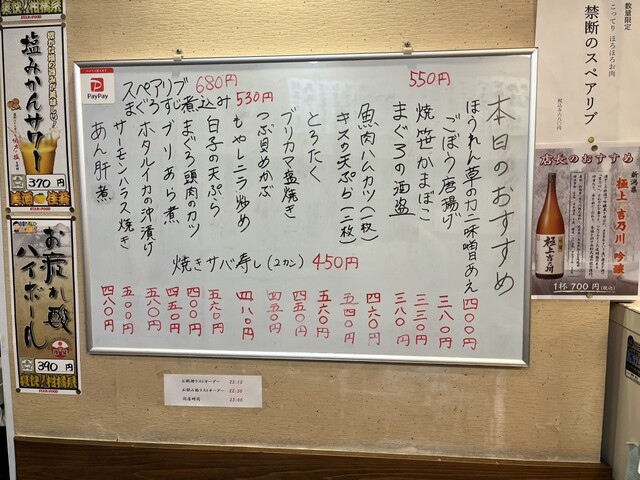 本日のおすすめ
ほうれん草のカニ味噌あえ 四〇〇円
ごぼう唐揚げ 三八〇円
焼笹かまぼこ 三三〇円
まぐろの酒盗 三八〇円
550円
魚肉ハムカツ(一枚) 四六〇円
キスの天ぷら(二枚) 五四〇円
とろたく 五六〇円
ブリカマ塩焼き 四五〇円
つぶ貝めかぶ 四五〇円
もやしニラ炒め 四八〇円
白子の天ぷら 五六〇円
まぐろ頭肉のカツ 四〇〇円
ブリあら煮 四五〇円
ホタルイカの沖漬け 五八〇円
サーモンハラス焼き 五〇〇円
あん肝煮 四八〇円
スペアリブ 680円
まぐろすじ煮込み 530円
焼きサバ寿し(2カン) 450円
PayPay
塩みかんサワー
370円
お疲れ酸ハイボール
390円
数量限定
こってりほろほろお肉
禁断のスペアリブ
店長のおすすめ
新潟県
極上 吉乃川 吟醸
極上吉乃川
1杯 700円(税込)
22:30
23:00